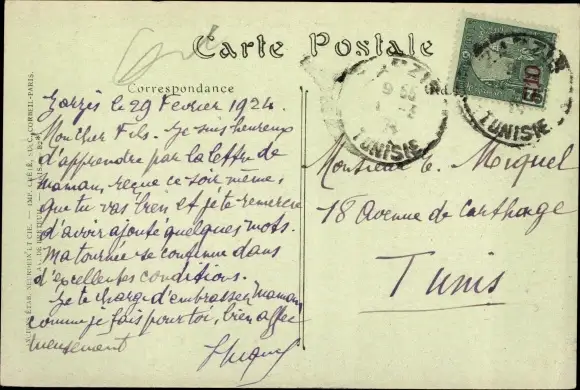 Carte Postale
Correspondance
Zarzis le 29 Février 1924.
Mon cher Fils. Je suis heureux
d'apprendre par la lettre de
Maman, reçue ce soir même,
que tu vas bien et je te remercie
d'avoir ajouté quelques mots.
Ma tournée se continue dans
d'excellentes conditions.
Je te charge d'embrasser Maman
comme je fais pour toi, bien affec
tueusement
Monsieur Miquel
18 Avenue de Carthage
Tunis
ZARZIS
TUNISIE
TUNISIE